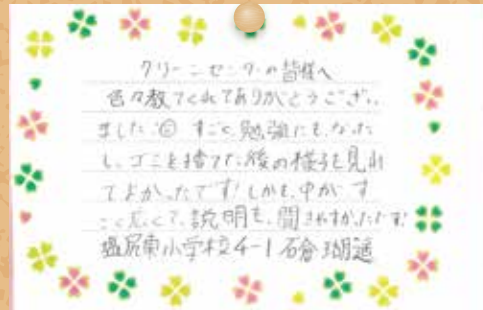 クリーンセンターの皆様へ
色々教えてくれてありがとうござい
ました☺ すごく勉強にもなった
し、ゴミを捨てた後の様子を見れ
てよかったです!しかも、中がす
ごく広くて、説明も聞きやすかったです!
塩尻東小学校4-1石倉瑚遥